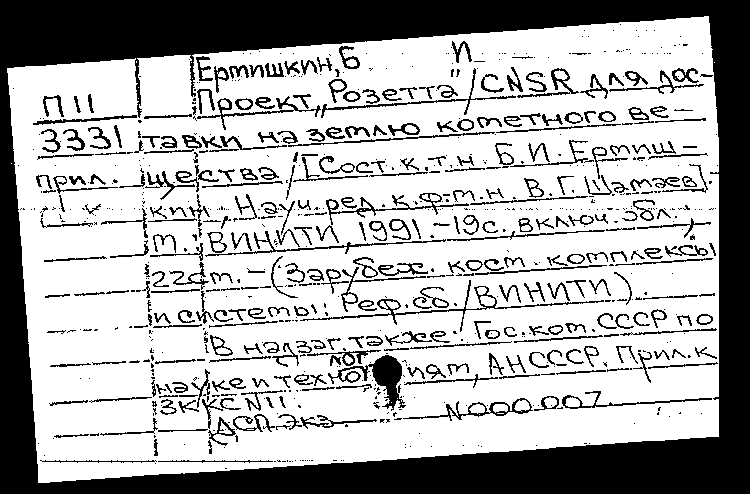 Ертишкин, Б И
П11 Проект „Розетта"/CNSR для дос-
3331 тавки на землю кометного ве-
прил. щества /[Сост. к.т.н. Б.И. Ертиш-
к кин, Науч. ред. к.ф.-м.н. В.Г. Шатаев].-
М.: ВИНИТИ, 1991.-19с., включ. обл.;
22см. - (Зарубеж. косм. комплексы
и системы: Реф. сб. /ВИНИТИ).
В надзаг. также: Гос. ком. СССР по
науке и технологиям, АН СССР. Прил. к
ЗККС N11.
ДСП. Экз. N000007.